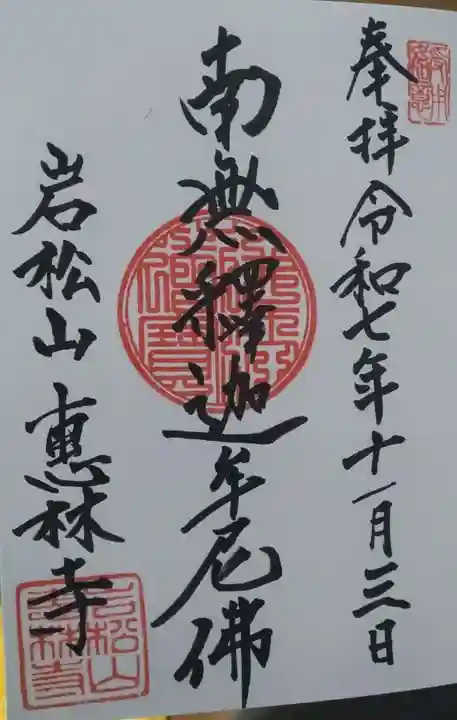 奉拝 令和七年十一月三日
南無釋迦牟尼佛
岩松山 惠林寺
佛法僧寶
岩松山
惠林寺